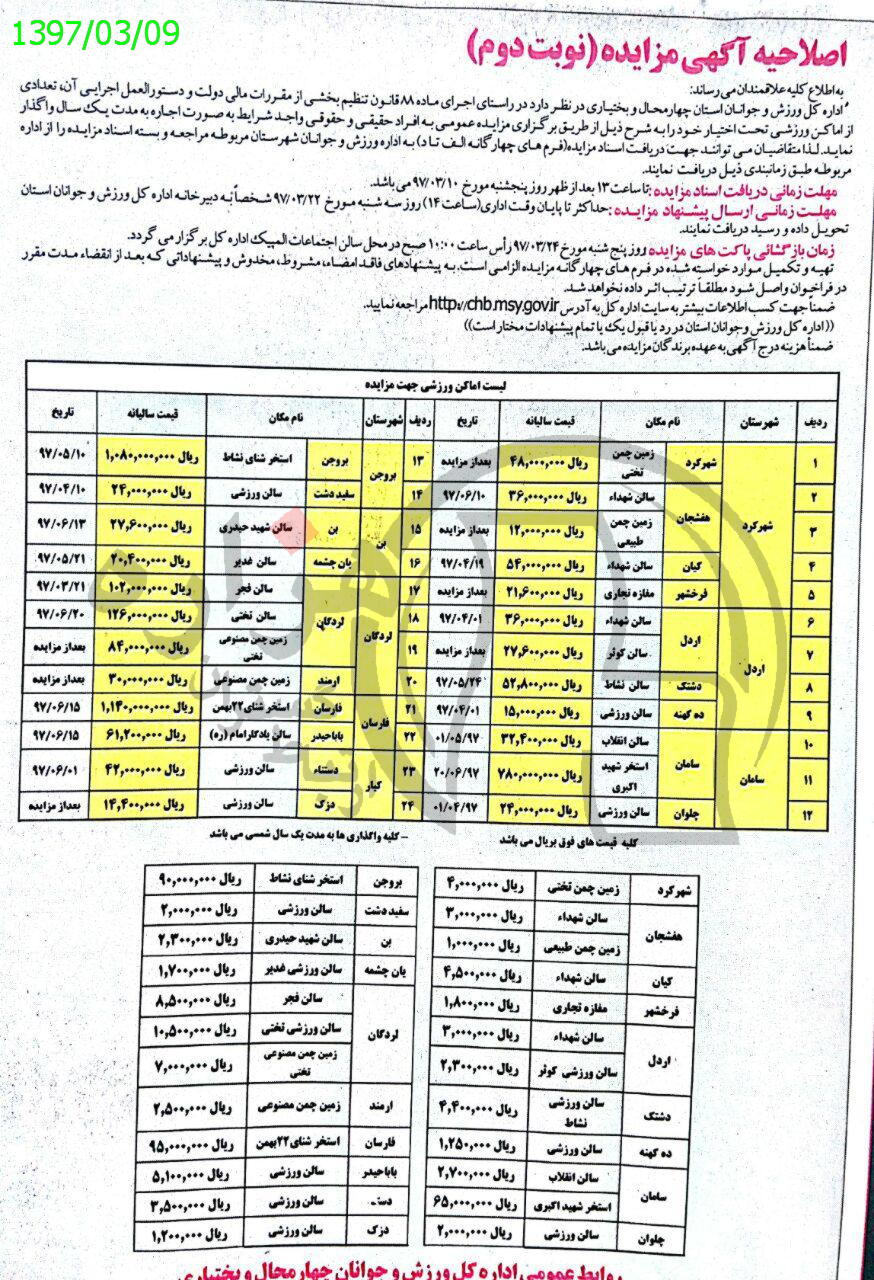 1397/03/09
اصلاحیه آگهی مزایده (نوبت دوم)
به اطلاع کلیه علاقمندان می‌رساند:
اداره کل ورزش و جوانان استان چهارمحال و بختیاری در نظر دارد در راستای اجرای ماده ۸۸ قانون تنظیم بخشی از مقررات مالی دولت و دستورالعمل اجرایی آن، تعدادی
از اماکن ورزشی تحت اختیار خود را به شرح ذیل از طریق برگزاری مزایده عمومی به افراد حقیقی و حقوقی واجد شرایط به صورت اجاره به مدت یک سال واگذار
نماید. لذا متقاضیان می توانند جهت دریافت اسناد مزایده (فرم های چهارگانه الف تا د) به اداره ورزش و جوانان شهرستان مربوطه مراجعه و بسته اسناد مزایده را از اداره
مربوطه طبق زمانبندی ذیل دریافت نمایند.
مهلت زمانی دریافت اسناد مزایده: تا ساعت ۱۳ بعد از ظهر روز پنجشنبه مورخ ۹۷/۰۳/۱۰ می باشد.
مهلت زمانی ارسال پیشنهاد مزایده: حداکثر تا پایان وقت اداری (ساعت ۱۴) روز سه شنبه مورخ ۹۷/۰۳/۲۲ شخصاً به دبیرخانه اداره کل ورزش و جوانان استان
تحویل داده و رسید دریافت نمایند.
زمان بازگشائی پاکت های مزایده روز پنج شنبه مورخ ۹۷/۰۳/۲۴ رأس ساعت ۱۰:۰۰ صبح در محل سالن اجتماعات المپیک اداره کل برگزار می گردد.
تهیه و تکمیل موارد خواسته شده در فرم های چهارگانه مزایده الزامی است. به پیشنهادهای فاقد امضاء، مشروط، مخدوش و پیشنهاداتی که بعد از انقضاء مدت مقرر
در فراخوان واصل شود مطلقا ترتیب اثر داده نخواهد شد.
ضمناً جهت کسب اطلاعات بیشتر به سایت اداره کل به آدرس http://chb.msy.gov.ir مراجعه نمایید.
((اداره کل ورزش و جوانان استان در رد یا قبول یک یا تمام پیشنهادات مختار است))
ضمناً هزینه درج آگهی به عهده برندگان مزایده می باشد.
لیست اماکن ورزشی جهت مزایده
ردیف شهرستان نام مکان قیمت سالیانه تاریخ ردیف شهرستان نام مکان قیمت سالیانه تاریخ
۱ شهرکرد شهرکرد زمین چمن تختی ۴۸,۰۰۰,۰۰۰ ریال بعداز مزایده ۱۳ بروجن بروجن استخر شنای نشاط ۱,۰۸۰,۰۰۰,۰۰۰ ریال ۹۷/۰۵/۱۰
۲ هفشجان سالن شهداء ۳۶,۰۰۰,۰۰۰ ریال ۹۷/۰۶/۱۰ ۱۴ سفیددشت سالن ورزشی ۲۴,۰۰۰,۰۰۰ ریال ۹۷/۰۴/۱۰
۳ زمین چمن طبیعی ۱۲,۰۰۰,۰۰۰ ریال بعداز مزایده ۱۵ بن بن سالن شهید حیدری ۲۷,۶۰۰,۰۰۰ ریال ۹۷/۰۶/۱۳
۴ کیان سالن شهداء ۵۴,۰۰۰,۰۰۰ ریال ۹۷/۰۴/۱۹ ۱۶ یان چشمه سالن غدیر ۲۰,۴۰۰,۰۰۰ ریال ۹۷/۰۵/۲۱
۵ فرخشهر مغازه تجاری ۲۱,۶۰۰,۰۰۰ ریال بعداز مزایده ۱۷ لردگان لردگان سالن فجر ۱۰۲,۰۰۰,۰۰۰ ریال ۹۷/۰۳/۲۱
۶ اردل اردل سالن شهداء ۳۶,۰۰۰,۰۰۰ ریال ۹۷/۰۴/۰۱ ۱۸ سالن تختی ۱۲۶,۰۰۰,۰۰۰ ریال ۹۷/۰۶/۲۰
۷ سالن کوثر ۲۷,۶۰۰,۰۰۰ ریال بعداز مزایده ۱۹ زمین چمن مصنوعی تختی ۸۴,۰۰۰,۰۰۰ ریال بعداز مزایده
۸ دشتک سالن نشاط ۵۲,۸۰۰,۰۰۰ ریال ۹۷/۰۵/۲۴ ۲۰ ارمند زمین چمن مصنوعی ۳۰,۰۰۰,۰۰۰ ریال بعداز مزایده
۹ ده کهنه سالن ورزشی ۱۵,۰۰۰,۰۰۰ ریال ۹۷/۰۴/۰۱ ۲۱ فارسان فارسان استخر شنای ۲۲بهمن ۱,۱۴۰,۰۰۰,۰۰۰ ریال ۹۷/۰۶/۱۵
۱۰ سامان سامان سالن انقلاب ۳۲,۴۰۰,۰۰۰ ریال ۰۱/۰۵/۹۷ ۲۲ باباحیدر سالن یادگار امام (ره) ۶۱,۲۰۰,۰۰۰ ریال ۹۷/۰۶/۱۵
۱۱ استخر شهید اکبری ۷۸۰,۰۰۰,۰۰۰ ریال ۲۰/۰۶/۹۷ ۲۳ کیار دستناء سالن ورزشی ۴۲,۰۰۰,۰۰۰ ریال ۹۷/۰۶/۰۱
۱۲ چلوان سالن ورزشی ۲۴,۰۰۰,۰۰۰ ریال ۰۱/۰۴/۹۷ ۲۴ دزک سالن ورزشی ۱۴,۴۰۰,۰۰۰ ریال بعداز مزایده
کلیه قیمت های فوق بریال می باشد
- کلیه واگذاری ها به مدت یک سال شمسی می باشد
شهرکرد زمین چمن تختی ۴,۰۰۰,۰۰۰ ریال
هفشجان سالن شهداء ۳,۰۰۰,۰۰۰ ریال
زمین چمن طبیعی ۱,۰۰۰,۰۰۰ ریال
کیان سالن شهداء ۴,۵۰۰,۰۰۰ ریال
فرخشهر مغازه تجاری ۱,۸۰۰,۰۰۰ ریال
اردل سالن شهداء ۳,۰۰۰,۰۰۰ ریال
سالن ورزشی کوثر ۲,۳۰۰,۰۰۰ ریال
دشتک سالن ورزشی نشاط ۴,۴۰۰,۰۰۰ ریال
ده کهنه سالن ورزشی ۱,۲۵۰,۰۰۰ ریال
سامان سالن انقلاب ۲,۷۰۰,۰۰۰ ریال
استخر شهید اکبری ۶۵,۰۰۰,۰۰۰ ریال
چلوان سالن ورزشی ۲,۰۰۰,۰۰۰ ریال
بروجن استخر شنای نشاط ۹۰,۰۰۰,۰۰۰ ریال
سفیددشت سالن ورزشی ۲,۰۰۰,۰۰۰ ریال
بن سالن شهید حیدری ۲,۳۰۰,۰۰۰ ریال
یان چشمه سالن ورزشی غدیر ۱,۷۰۰,۰۰۰ ریال
لردگان سالن فجر ۸,۵۰۰,۰۰۰ ریال
سالن ورزشی تختی ۱۰,۵۰۰,۰۰۰ ریال
زمین چمن مصنوعی تختی ۷,۰۰۰,۰۰۰ ریال
ارمند زمین چمن مصنوعی ۲,۵۰۰,۰۰۰ ریال
فارسان استخر شنای ۲۲بهمن ۹۵,۰۰۰,۰۰۰ ریال
باباحیدر سالن ورزشی ۵,۱۰۰,۰۰۰ ریال
سالن ورزشی ۳,۵۰۰,۰۰۰ ریال
دزک سالن ورزشی ۱,۲۰۰,۰۰۰ ریال
روابط عمومی اداره کل ورزش و جوانان چهارمحال و بختیاری